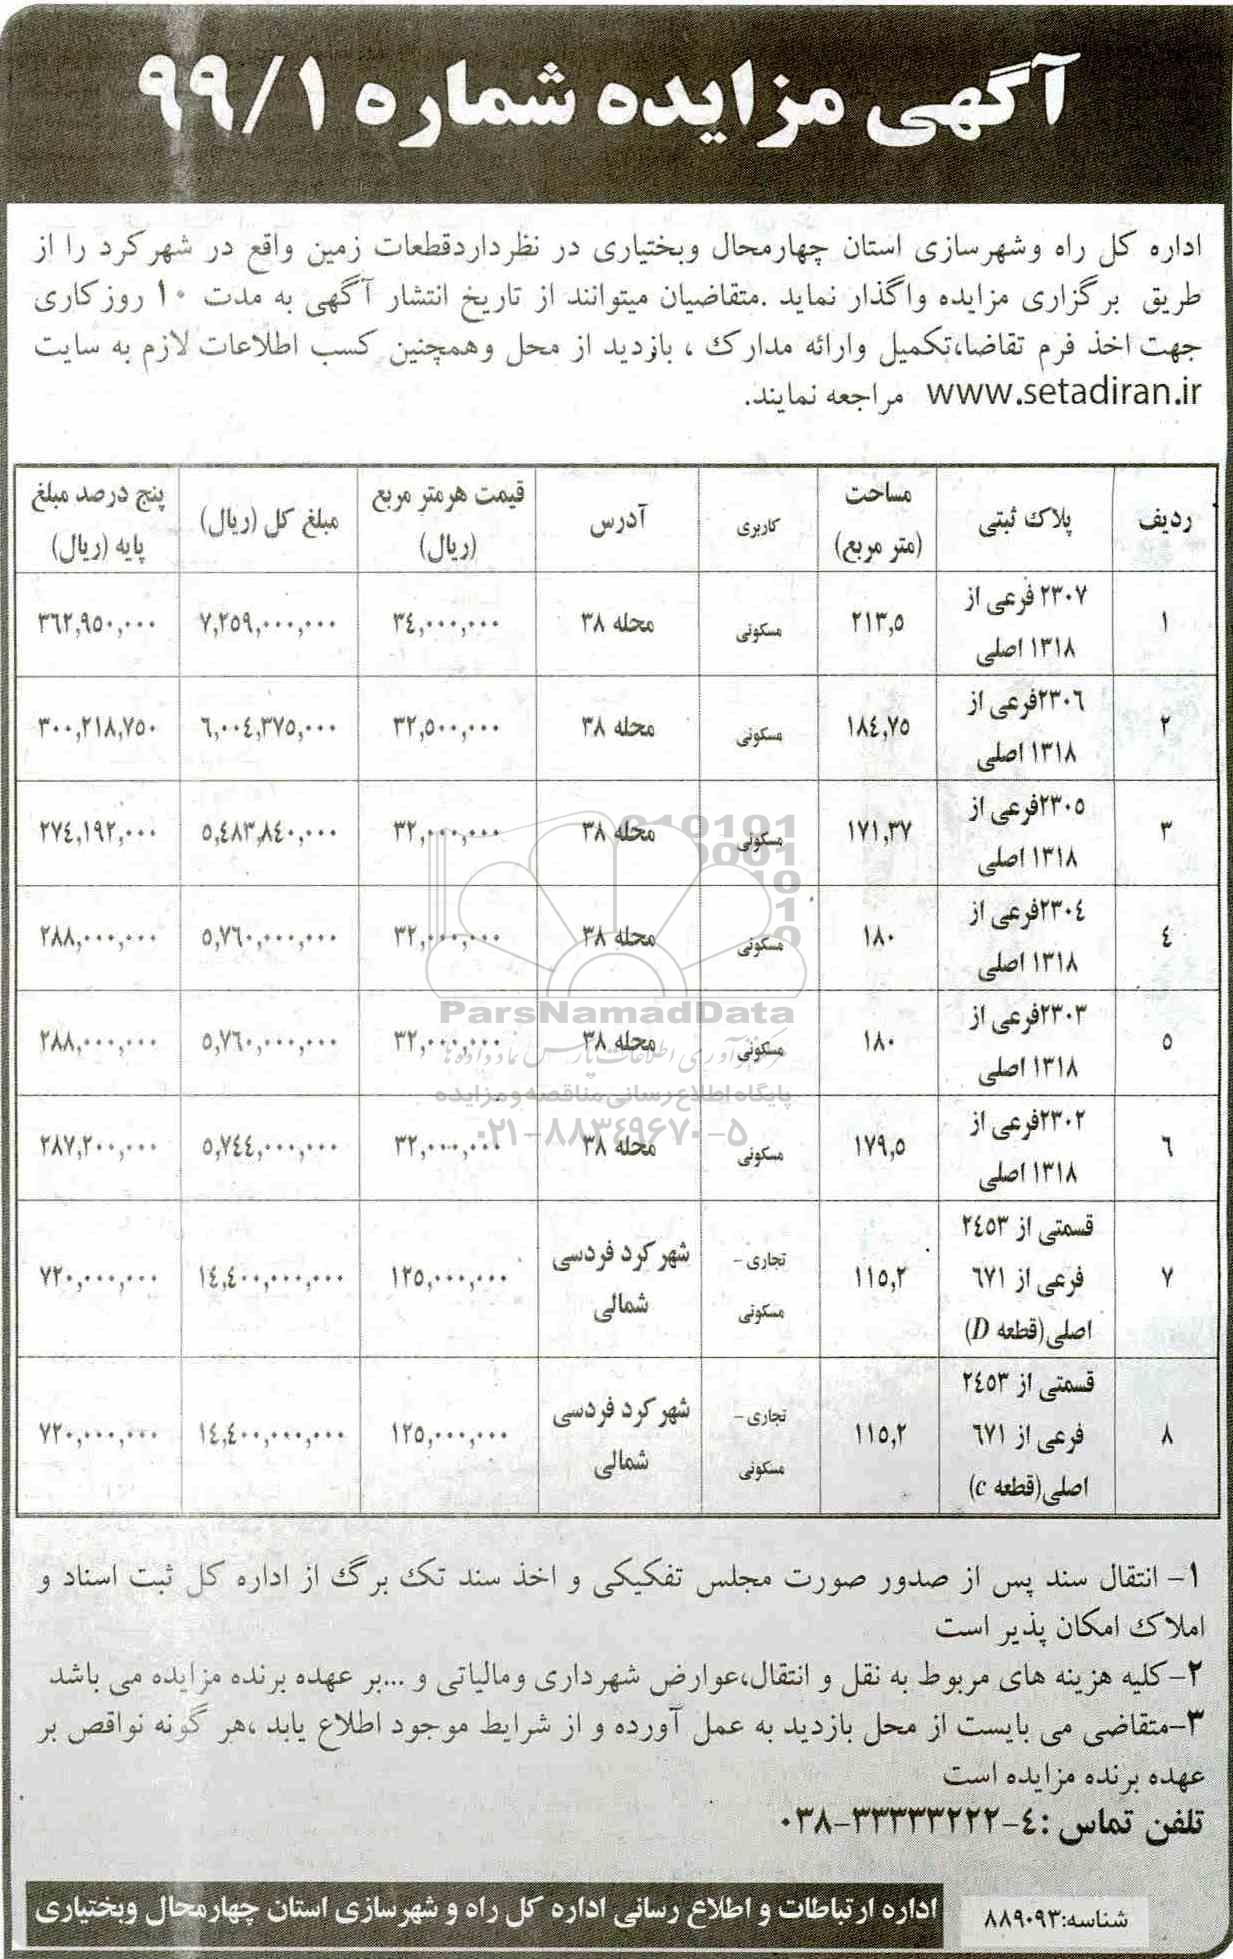 آگهی مزایده شماره ۹۹/۱
اداره کل راه وشهرسازی استان چهارمحال وبختیاری در نظرداردقطعات زمین واقع در شهرکرد را از
طریق برگزاری مزایده واگذار نماید .متقاضیان میتوانند از تاریخ انتشار آگهی به مدت ۱۰ روزکاری
جهت اخذ فرم تقاضا،تکمیل وارائه مدارک ، بازدید از محل وهمچنین کسب اطلاعات لازم به سایت
www.setadiran.ir مراجعه نمایند.
ردیف پلاک ثبتی مساحت (متر مربع) کاربری آدرس قیمت هرمتر مربع (ریال) مبلغ کل (ریال) پنج درصد مبلغ پایه (ریال)
۱ ۲۳۰۷ فرعی از ۱۳۱۸ اصلی ۲۱۳,۵ مسکونی محله ۳۸ ۳٤,۰۰۰,۰۰۰ ۷,۲۵۹,۰۰۰,۰۰۰ ۳٦۲,۹۵۰,۰۰۰
۲ ۲۳۰٦فرعی از ۱۳۱۸ اصلی ۱۸٤,۷۵ مسکونی محله ۳۸ ۳۲,۵۰۰,۰۰۰ ٦,۰۰٤,۳۷۵,۰۰۰ ۳۰۰,۲۱۸,۷۵۰
۳ ۲۳۰۵فرعی از ۱۳۱۸ اصلی ۱۷۱,۳۷ مسکونی محله ۳۸ ۳۲,۰۰۰,۰۰۰ ۵,٤۸۳,۸٤۰,۰۰۰ ۲۷٤,۱۹۲,۰۰۰
٤ ۲۳۰٤فرعی از ۱۳۱۸ اصلی ۱۸۰ مسکونی محله ۳۸ ۳۲,۰۰۰,۰۰۰ ۵,۷٦۰,۰۰۰,۰۰۰ ۲۸۸,۰۰۰,۰۰۰
۵ ۲۳۰۳فرعی از ۱۳۱۸ اصلی ۱۸۰ مسکونی محله ۳۸ ۳۲,۰۰۰,۰۰۰ ۵,۷٦۰,۰۰۰,۰۰۰ ۲۸۸,۰۰۰,۰۰۰
٦ ۲۳۰۲فرعی از ۱۳۱۸ اصلی ۱۷۹,۵ مسکونی محله ۳۸ ۳۲,۰۰۰,۰۰۰ ۵,۷٤٤,۰۰۰,۰۰۰ ۲۸۷,۲۰۰,۰۰۰
۷ قسمتی از ۲٤۵۳ فرعی از ٦۷۱ اصلی(قطعه D) ۱۱۵,۲ تجاری- مسکونی شهرکرد فردسی شمالی ۱۲۵,۰۰۰,۰۰۰ ۱٤,٤۰۰,۰۰۰,۰۰۰ ۷۲۰,۰۰۰,۰۰۰
۸ قسمتی از ۲٤۵۳ فرعی از ٦۷۱ اصلی(قطعه c) ۱۱۵,۲ تجاری- مسکونی شهرکرد فردسی شمالی ۱۲۵,۰۰۰,۰۰۰ ۱٤,٤۰۰,۰۰۰,۰۰۰ ۷۲۰,۰۰۰,۰۰۰
ParsNamadData
پایگاه اطلاع رسانی مناقصه و مزایده
۰۲۱-۸۸۳۴۹۶۷۰-۵
۱- انتقال سند پس از صدور صورت مجلس تفکیکی و اخذ سند تک برگ از اداره کل ثبت اسناد و
املاک امکان پذیر است
۲-کلیه هزینه های مربوط به نقل و انتقال،عوارض شهرداری ومالیاتی و ...بر عهده برنده مزایده می باشد
۳-متقاضی می بایست از محل بازدید به عمل آورده و از شرایط موجود اطلاع یابد ،هر گونه نواقص بر
عهده برنده مزایده است
تلفن تماس :٤-۳۳۳۳۳۲۲۲-۰۳۸
شناسه:۸۸۹۰۹۳
اداره ارتباطات و اطلاع رسانی اداره کل راه و شهرسازی استان چهارمحال وبختیاری